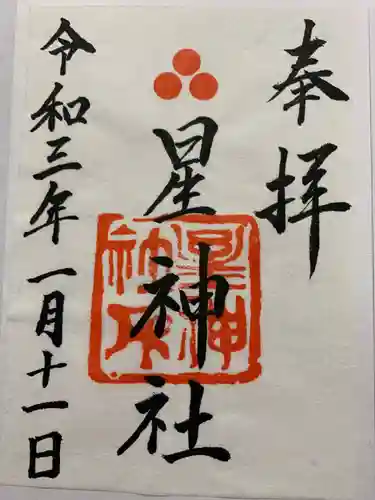 奉拝
星神社
令和三年一月十一日